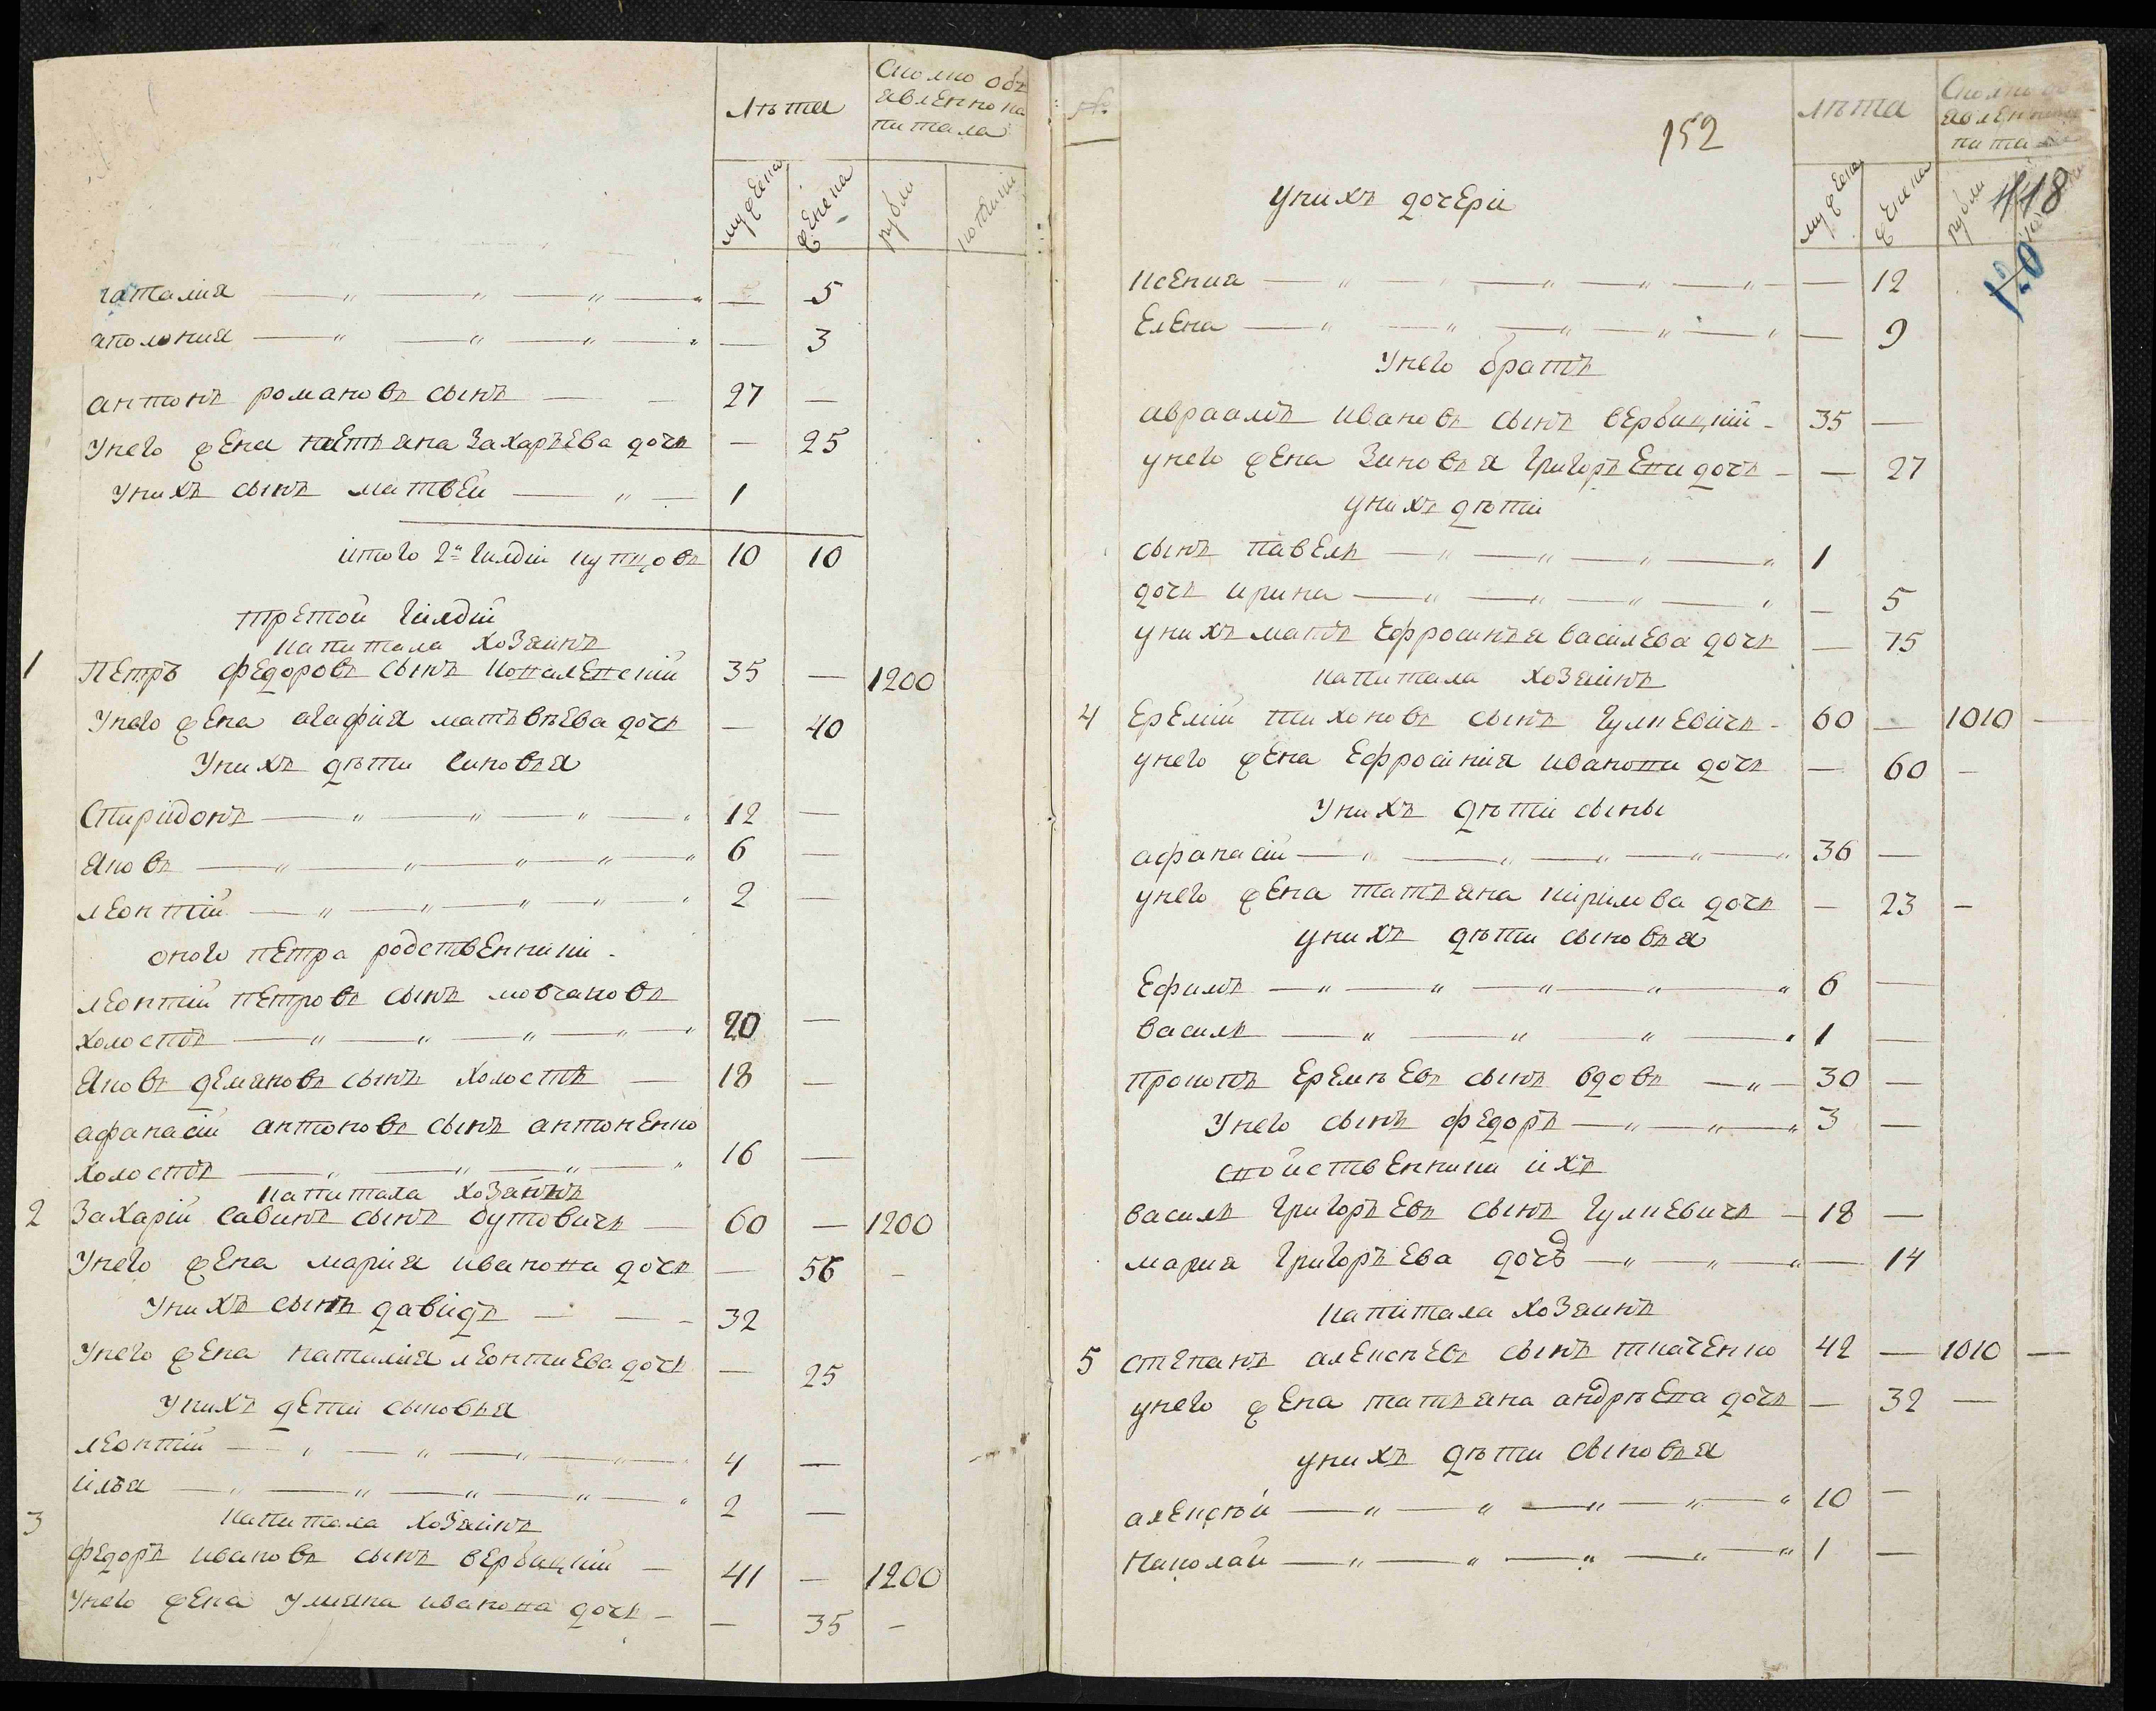 Лѣта
Сколко объ
явленно ка
питала
мужеска
женска
рубли
копѣики
наталия — — — — 5
аполония — — — — 3
антонъ романовъ сынъ — 27 —
Унего жена татьяна Захарьева дочь — 25
Унихъ сынъ матвеи — 1
итого 2й гилдіи купцовъ 10 10
третой гилдіи
капитала хоЗяинъ
1 Петръ федоровъ сынъ Коваленскій 35 — 1200
Унего жена агафия матъвѣева дочь — 40
Унихъ дѣти синовья
Спиридонъ — 12 —
Яковъ — 6 —
леонтій — 2 —
оного петра родственники.
леонтій петровъ сынъ мовчановъ
холостъ — 20 —
Яковъ демяновъ сынъ холостъ — 18 —
афанасій антоновъ сынъ антоненко
холостъ — 16 —
капитала хоЗяинъ
2 Захарій Савинъ сынъ бутовичъ — 60 — 1200
Унего жена мария иванона дочь — 56 —
Унихъ сынъ давидъ — 32
Унего жена наталия леонтиева дочь — 25
Унихъ дети сыновья
леонтій — 4 —
илья — 2 —
капитала хоЗяинъ
3
федоръ ивановъ сынъ вербицкій — 41 — 1200
Унего жена Уляна иванона дочь — 35 —
№
152
лѣта
Сколко
явленно
пита
мужеска
женска
рубли
118
120
Унихъ дочери
Ксения — — 12
Елена — — 9
Унего братъ
авраамъ ивановъ сынъ вербицкій - 35 —
унего жена Зиновья Григорьена дочь — 27
унихъ дѣти
сынъ павелъ — 1
дочь ирина — — 5
унихъ мать Ефросинья василева дочь — 75
капитала хоЗяинъ
4 Еремій тихоновъ сынъ Гулкевичъ - 60 — 1010 —
унего жена Ефросиния иванона дочь — 60 —
Унихъ дѣти сыны
афанасій — 36 —
унего жена татьяна кирилова дочь — 23 —
унихъ дѣти сыновья
Ефимъ — 6 —
василь — 1 —
прокопъ Еремѣевъ сынъ вдовъ — 30 —
Унего сынъ федоръ — 3 —
споиственники ихъ
василь Григорьевъ сынъ Гулкевичъ — 18 —
мария Григорьева дочъ — — 14
капитала хоЗяинъ
5 степанъ алексѣевъ сынъ ткаченко 42 — 1010 —
унего жена татьяна андрѣена дочь — 32 —
унихъ дѣти сыновья
алексѣй — 10 —
Николай — 1 —